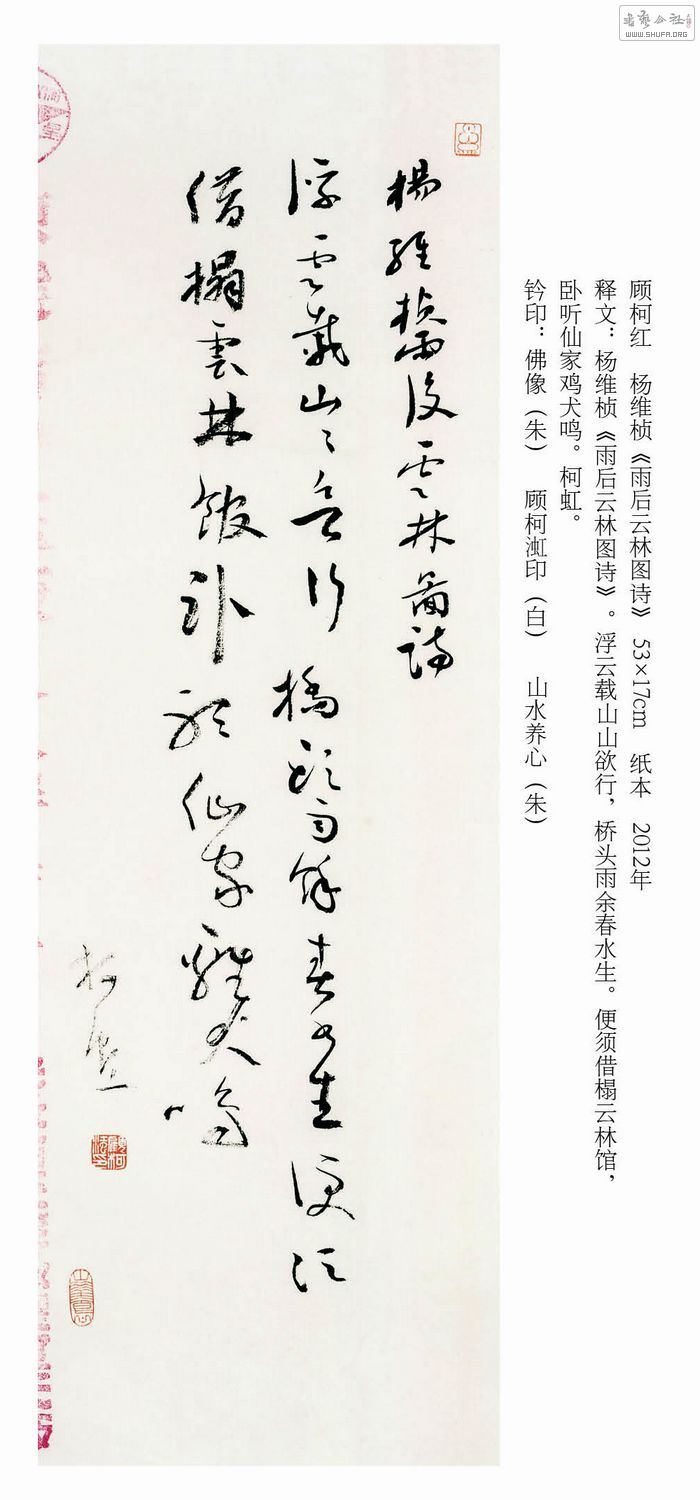 書藝公社
WWW.SHUFA.ORG
顾柯红 杨维桢《雨后云林图诗》 53×17cm 纸本 2012年
释文：杨维桢《雨后云林图诗》。浮云载山山欲行，桥头雨余春水生。便须借榻云林馆，
卧听仙家鸡犬鸣。柯虹。
钤印：佛像（朱） 顾柯渱印（白） 山水养心（朱）
楊維楨雨後雲林圖詩
浮雲載山〻欲行橋頭雨餘春水生便須
借榻雲林館卧聽仙家雞犬鳴
柯虹